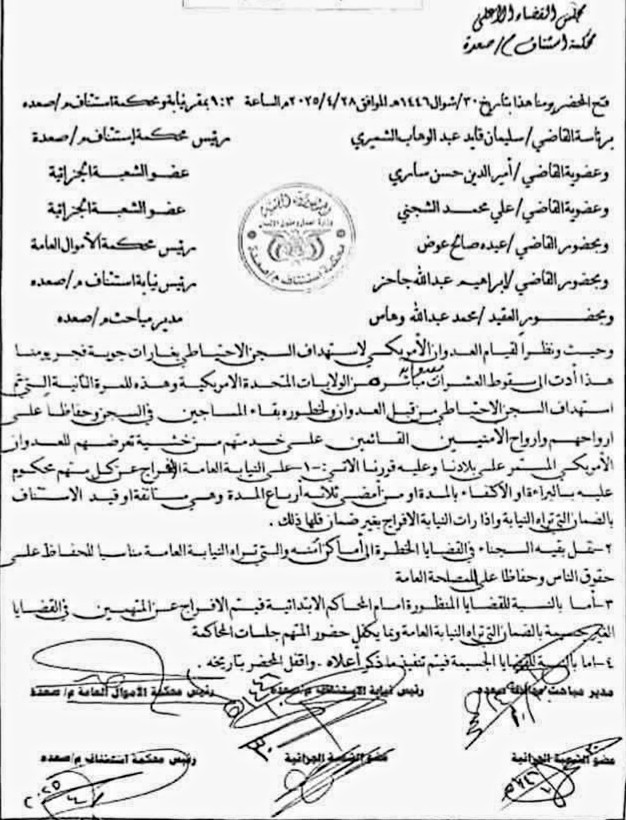 مجلس القضاء الأعلى
محكمة استئناف م/صعدة
فتح المحضر يومنا هذا بتاريخ ٣٠/شوال/١٤٤٦هـ الموافق ٢٠٢٥/٤/٢٨م الساعة ٩:٣ بمقر نيابة ومحكمة استئناف م/صعده
برئاسة القاضي/سليمان قايد عبد الوهاب الشميري رئيس محكمة إستئناف م/صعدة
وعضوية القاضي/أمير الدين حسن ساري عضو الشعبة الجزائية
وعضوية القاضي/علي محمد الشجني عضو الشعبة الجزائية
وبحضور القاضي/عبده صالح عوض رئيس محكمة الأموال العامة
وبحضور القاضي/إبراهيم عبدالله جاحز رئيس نيابة استئناف م/صعده
وبحضور العقيد/محمد عبدالله وهاس مدير مباحث م/صعده
وحيث ونظراً لقيام العدوان الأمريكي لاستهداف السجن الاحتياطي بغارات جوية فجر يومنا
هذا أدت الى سقوط العشرات مباشره من الولايات المتحدة الامريكية وهذه للمرة الثانية التي تم
استهداف السجن الاحتياطي من قبل العدوان ولخطوره بقاء المساجين في السجن وحفاظاً على
ارواحهم وارواح الأمنيين القائمين على خدمتهم من خشية تعرضهم للعدوان
الأمريكي المستمر على بلادنا وعليه قررنا الاتي :-١-على النيابة العامة الإفراج عن كل متهم محكوم
عليه بالبراءة او الاكتفاء بالمدة او من أمضى ثلاثه أرباع المدة وهي سائقة او قيد الاستئناف
بالضمان التي تراه النيابة واذا رات النيابة الافراج بغير ضمان فلها ذلك .
٢-نقل بقيه السجناء في القضايا الخطرة الى أماكن آمنه والتي تراه النيابة العامة مناسبا للحفاظ على
حقوق الناس وحفاظا على المصلحة العامة
٣-أما بالنسبة للقضايا المنظورة امام المحاكم الابتدائية فيتم الافراج عن المتهمين في القضايا
الغير جسيمة بالضمان التي تراه النيابة العامة وبما يكفل حضور المتهم جلسات المحاكمة
٤-اما بالنسبة للقضايا الجسيمة فيتم تنفيذ ما ذكر أعلاه . واقفل المحضر بتاريخه .
مدير مباحث محافظة صعده رئيس نيابة الاستئناف م/صعده رئيس محكمة الاموال العامة م/صعدة
عضو الشعبة الجزائية عضو الشعبة الجزائية رئيس محكمة استئناف م/صعده
محكمة استئناف م/صعدة